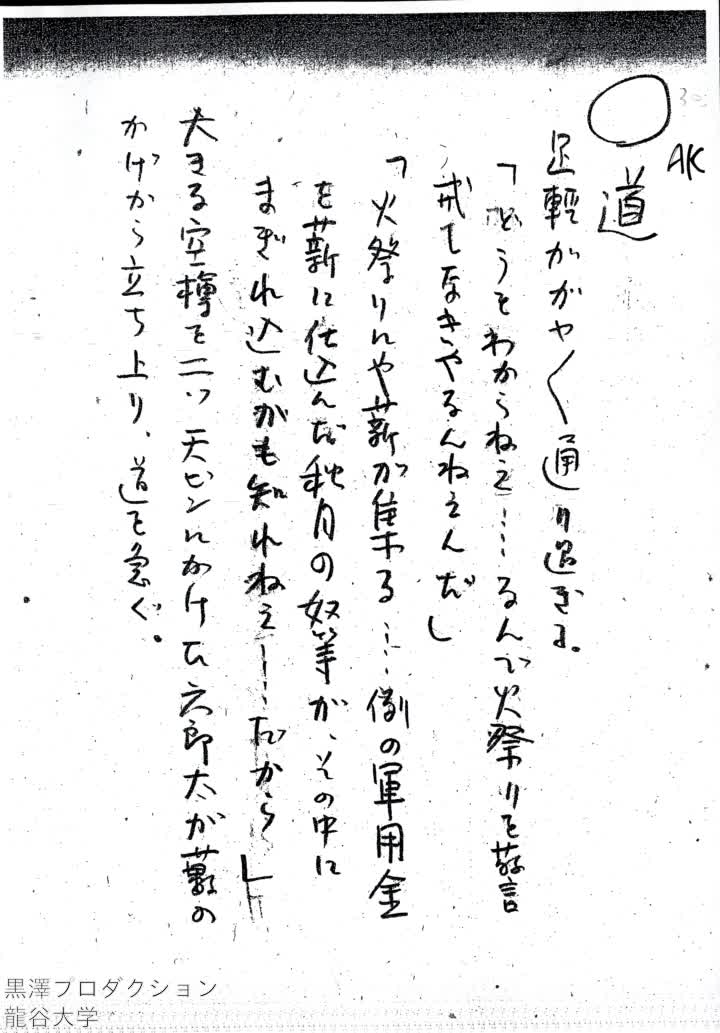 30
AK
道
足軽ががやく通り過ぎる。
「どうもわからねえ……なんで火祭りを警
戒しなきやならんねえんだ」
「火祭りにや薪が集る……例の軍用金
を薪に仕込んだ秋月の奴等が、その中に
まぎれ込むかも知れねえ……だから」
大きな空樽を二ツ天ビンにかけた六郎太が藪の
かげから立ち上り、道を急ぐ。
黒澤プロダクション
龍谷大学